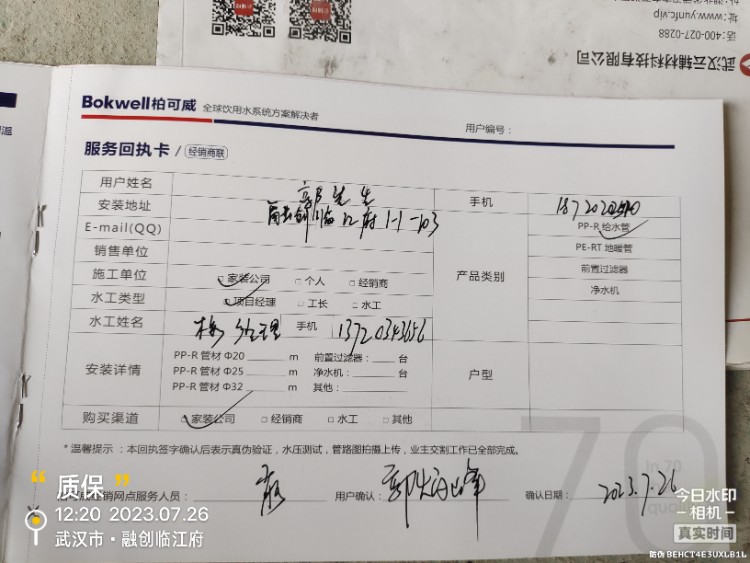 址：www.yunfc.vip
话：400-027-0288
武汉云辅材科技有限公司
Bokwell柏可威 全球饮用水系统方案解决者
用户编号：
服务回执卡 / 经销商联
用户姓名 郭先生 手机
安装地址 1-1-103
E-mail(QQ)
PP-R 给水管
销售单位
PE-RT 地暖管
产品类别
前置过滤器
施工单位 □家装公司 □个人 □经销商
净水机
水工类型 □项目经理 □工长 □水工
水工姓名 经理 手机 13720343656
安装详情
PP-R 管材 Φ20 m 前置过滤器： 台
PP-R 管材 Φ25 m 净水机： 台
PP-R 管材 Φ32 m 其他：
户型
购买渠道 □家装公司 □经销商 □水工 □其他
*温馨提示：本回执签字确认后表示真伪验证，水压测试，管路图拍摄上传，业主交割工作已全部完成。
经销网点服务人员： 用户确认： 确认日期： 2023.7.26
70
质保
12:20 2023.07.26
武汉市·融创临江府
今日水印
相机
真实时间
防伪 BEHCT4E3UXLB1L